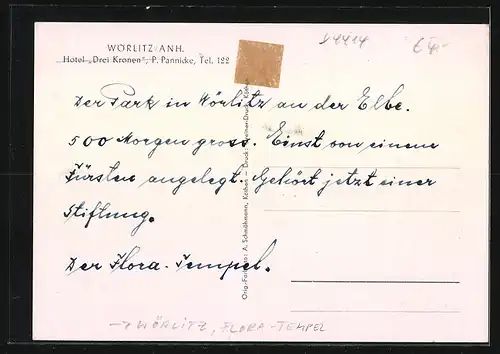 WÖRLITZ/ANH.
Hotel „Drei Kronen", P. Pannicke, Tel. 122
Der Park in Wörlitz an der Elbe.
500 Morgen gross. Einst von einem
Fürsten angelegt. Gehört jetzt einer
Stiftung.
Der Flora-Tempel.
Orig.-Foto A. Schnühmann, Köthen – Druck:
→ WÖRLITZ, FLORA-TEMPEL